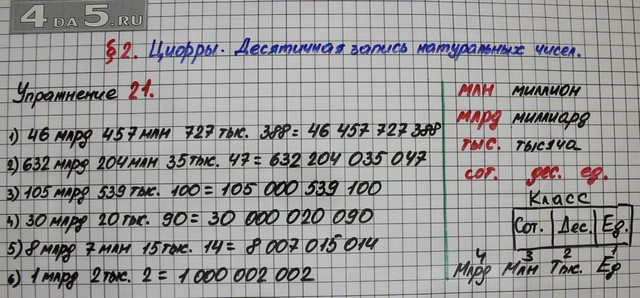 4 DA 5.RU
§2. Цифры. Десятичная запись натуральных чисел.
Упражнение 21.
1) 46 млрд 457 млн 727 тыс. 388 = 46 457 727 388
2) 632 млрд 204 млн 35 тыс. 47 = 632 204 035 047
3) 105 млрд 539 тыс. 100 = 105 000 539 100
4) 30 млрд 20 тыс. 90 = 30 000 020 090
5) 8 млрд 7 млн 15 тыс. 14 = 8 007 015 014
6) 1 млрд 2 тыс. 2 = 1 000 002 002
млн миллион
млрд миллиард
тыс. тысяча
сот. дес. ед.
Класс
Сот. Дес. Ед.
4 3 2 1
Млрд Млн Тыс. Ед